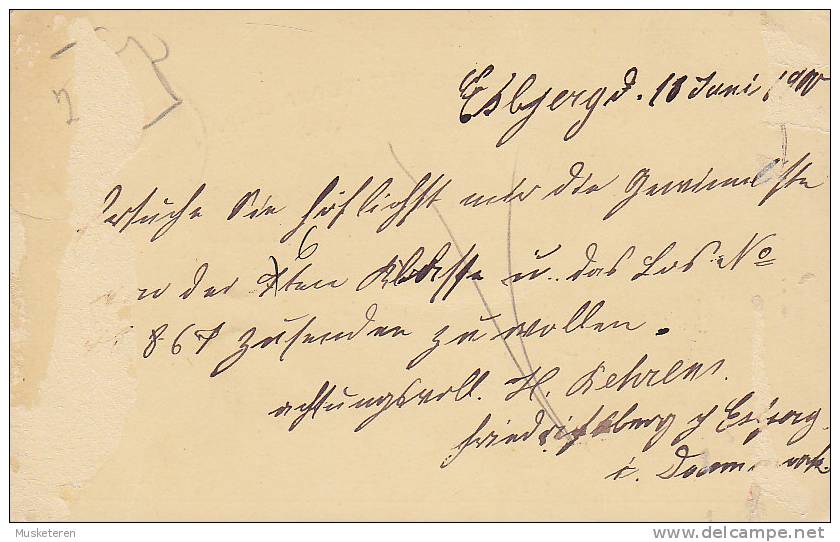 Esbjerg d. 18 Juni 1900
Ersuche Sie höflichst mir die Gewinnliste
der 6ten Klasse u. das Los No
867 zusenden zu wollen.
achtungsvoll. H. Behrens.
Friedrichsberg p Esbjerg.
i. Danmark.
Musketeren
delcampe.net